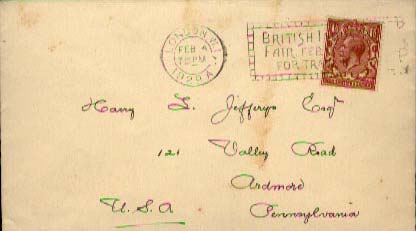 LONDON. W.1
FEB 4
7 PM
BRITISH I
FAIR FEB
FOR TRA
Harry S. Jefferys Esqr
121 Valley Road
Ardmore
U.S.A Pennsylvania